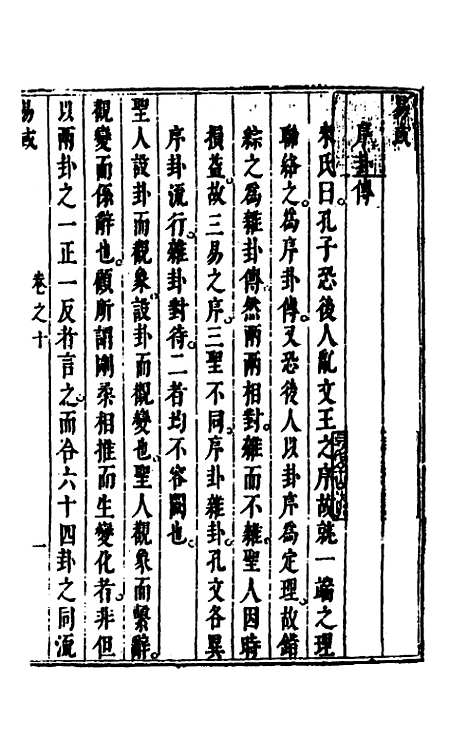 易或
序卦傳
來氏曰孔子恐後人亂文王之序故就一端之理
聯絡之爲序卦傳又恐後人以卦序爲定理故錯
綜之爲雜卦傳然兩兩相對雜而不雜聖人因時
損益故三易之序三聖不同序卦雜卦孔文各異
序卦流行雜卦對待二者均不容闕也
聖人設卦而觀象設卦而觀變也聖人觀象而繫辭
觀變而係辭也顧所謂剛柔相推而生變化者非但
以兩卦之一正一反者言之而合六十四卦之同流
易或
卷之十
一